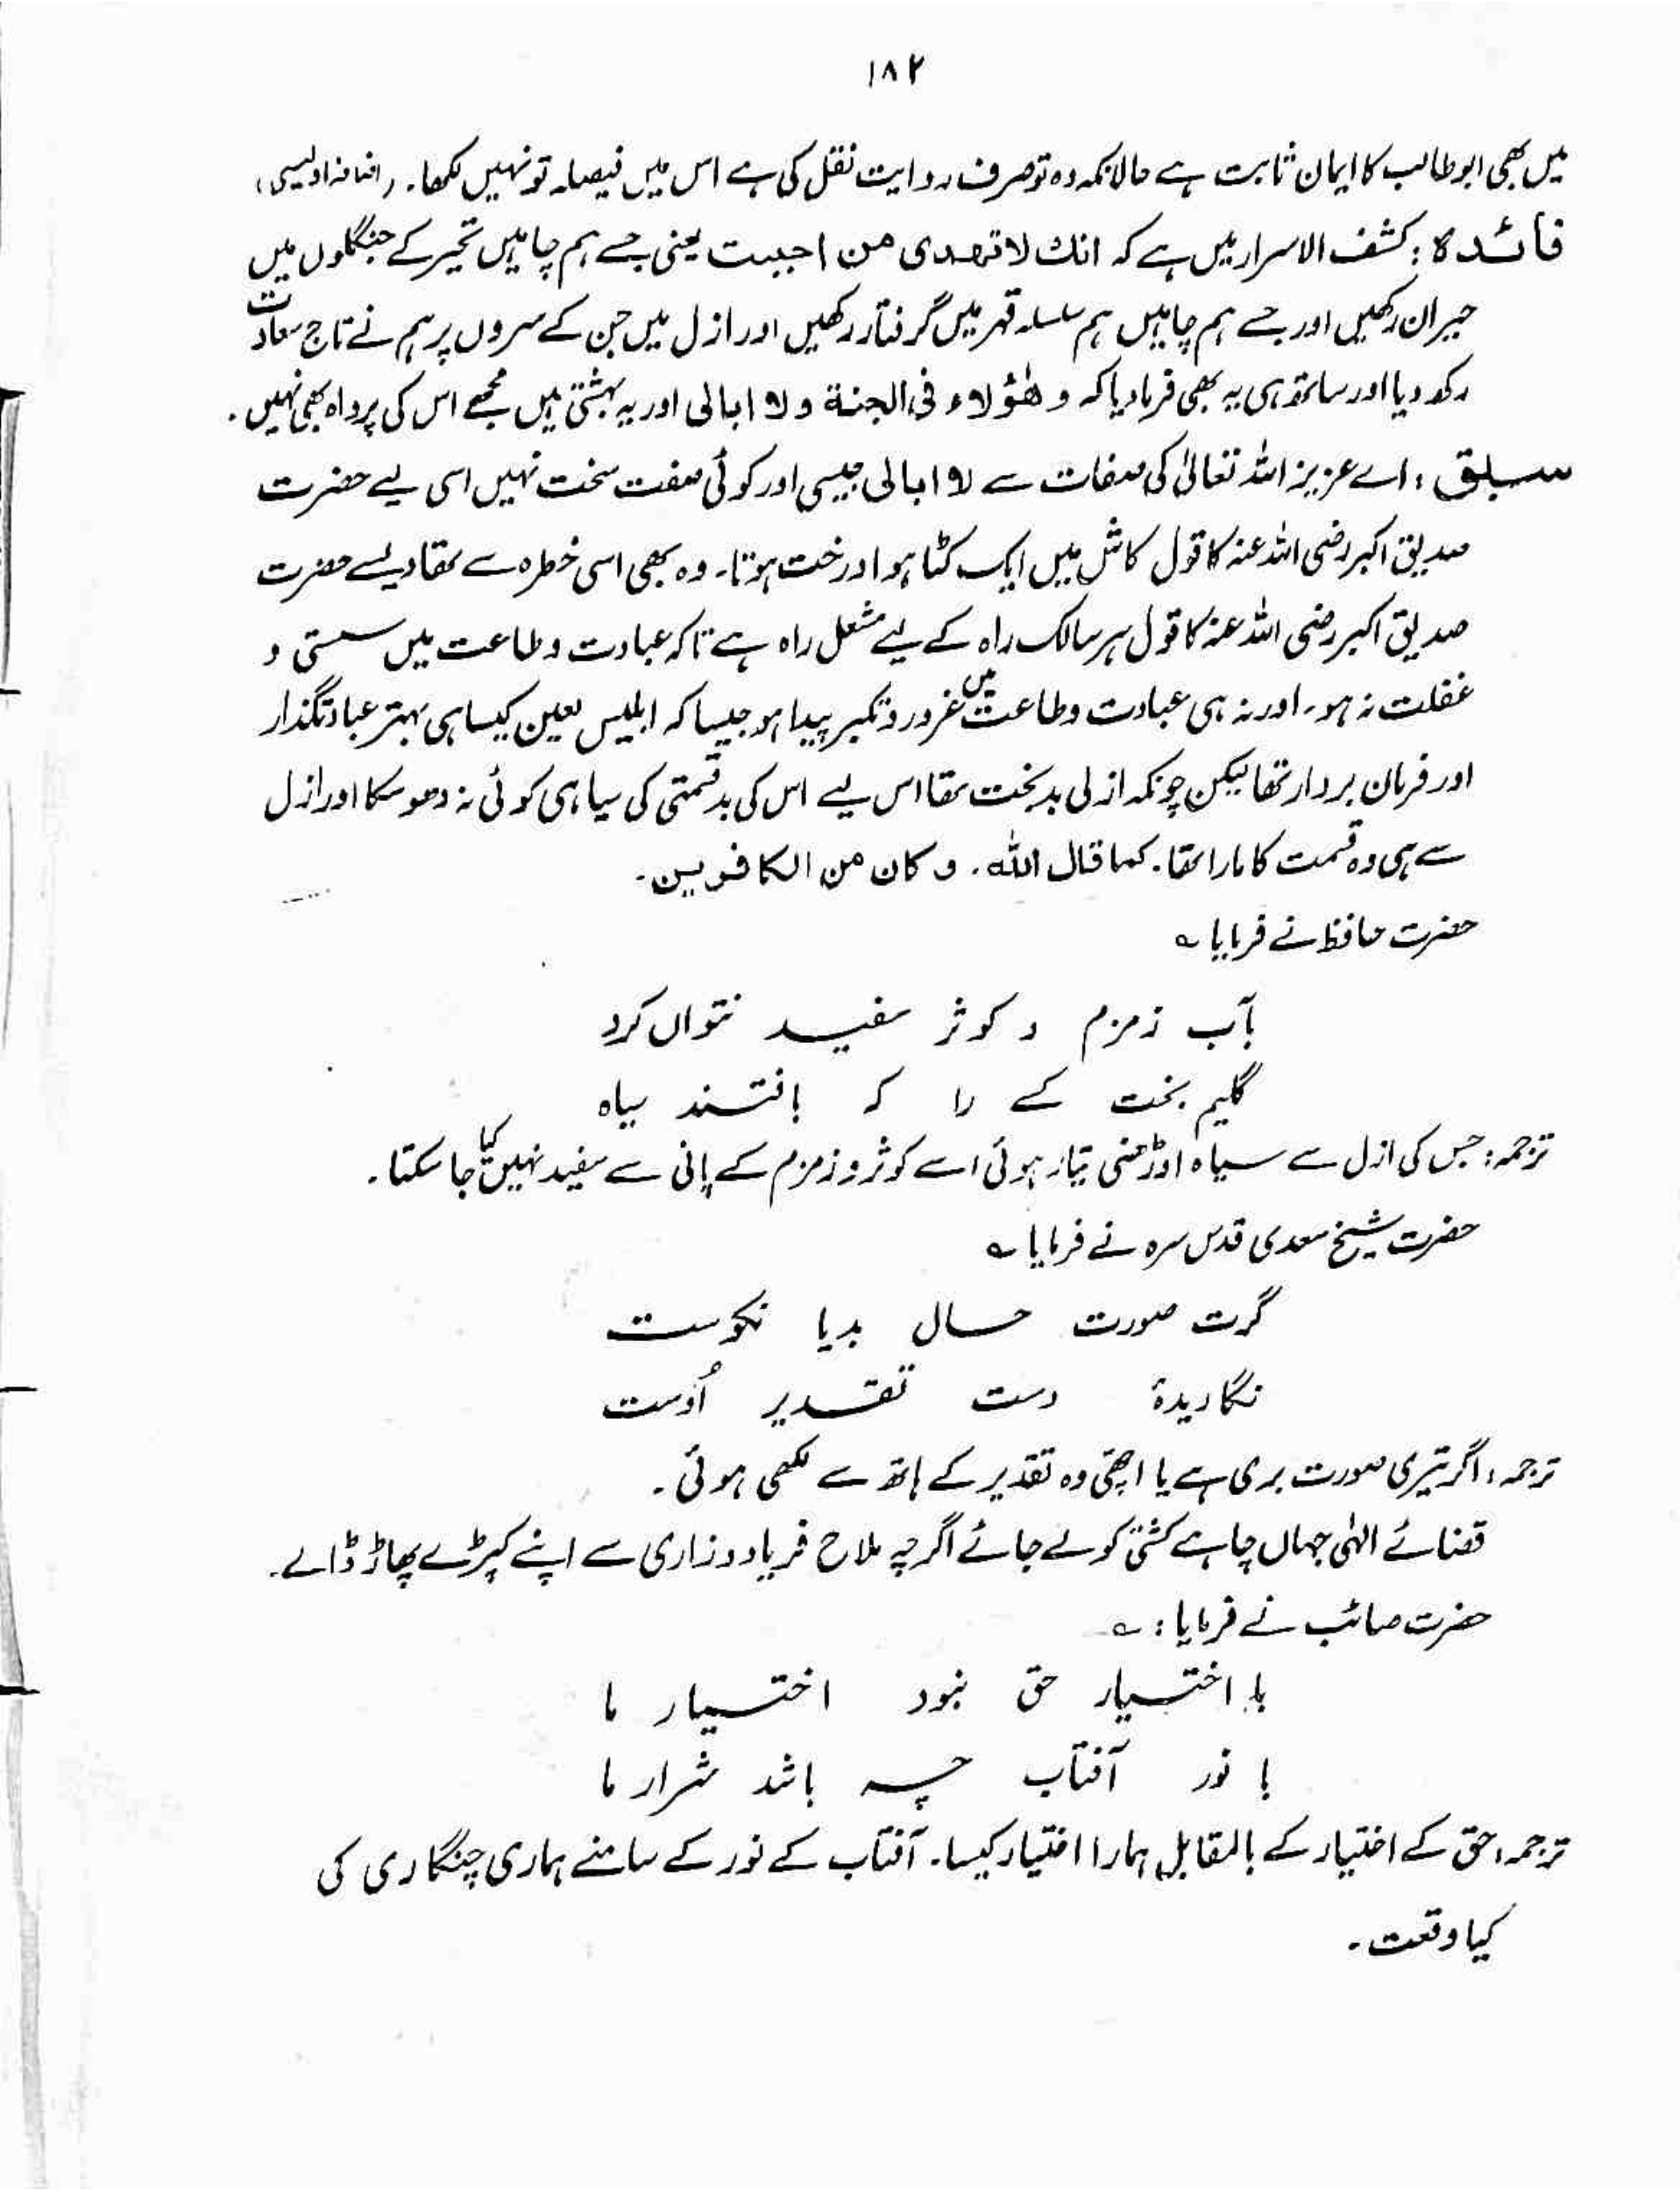 ۱۸۲
میں بھی ابوطالب کا ایمان ثابت ہے حالانکہ وہ تو صرف روایت نقل کی ہے اس میں فیصلہ تو نہیں لکھا۔ (اضافہ اویسی)
فائدہ : کشف الاسرار میں ہے کہ انك لا تهدى من احببت یعنی جسے ہم چاہیں تحیر کے جنگلوں میں
حیران رکھیں اور جسے ہم چاہیں ہم سلسلہ قہر میں گرفتار رکھیں اور ازل میں جن کے سروں پر ہم نے تاج سعادت
رکھ دیا اور ساتھ ہی یہ بھی فرما دیا کہ و هٰؤلاء فى الجنة ولا ابالى اور یہ بہشتی ہیں مجھے اس کی پرواہ بھی نہیں۔
سبلق : اے عزیز اللہ تعالیٰ کی صفات سے لا ابالی جیسی اور کوئی صفت سخت نہیں اسی لیے حضرت
صدیق اکبر رضی اللہ عنہ کا قول کاش میں ایک کٹا ہوا درخت ہوتا۔ وہ بھی اسی خطرہ سے تھا دیسے حضرت
صدیق اکبر رضی اللہ عنہ کا قول ہر سالک راہ کے لیے مشعل راہ ہے تاکہ عبادت و طاعت میں سستی و
غفلت نہ ہو۔ اور نہ ہی عبادت و طاعت میں غرور و تکبر پیدا ہو جیسا کہ ابلیس لعین کیسا ہی بہتر عبادتگذار
اور فرمان بردار تھا لیکن چونکہ ازلی بدبخت تھا اس لیے اس کی بدقسمتی کی سیاہی کوئی نہ دھو سکا اور ازل
سے ہی وہ قسمت کا مارا تھا۔ كما قال الله . و كان من الكافرين۔
حضرت حافظ نے فرمایا ؎
بآب زمزم و کوثر سفید نتواں کرد
گلیم بخت کسے را کہ بافتند سیاہ
ترجمہ : جس کی ازل سے سیاہ اوڑھنی تیار ہوئی اسے کوثر و زمزم کے پانی سے سفید نہیں کیا جا سکتا۔
حضرت شیخ سعدی قدس سرہ نے فرمایا ؎
گرت صورت حال بدیا نکوست
نگاریدۂ دست تقدیر اُوست
ترجمہ : اگر تیری صورت بری ہے یا اچھی وہ تقدیر کے ہاتھ سے لکھی ہوئی۔
قضائے الٰہی جہاں چاہے کشتی کو لے جائے اگرچہ ملاح فریاد و زاری سے اپنے کپڑے پھاڑ ڈالے۔
حضرت صائب نے فرمایا : ؎
با اختیار حق نبود اختیار ما
با نور آفتاب چہ باشد شرار ما
ترجمہ : حق کے اختیار کے بالمقابل ہمارا اختیار کیسا۔ آفتاب کے نور کے سامنے ہماری چنگاری کی
کیا وقعت۔